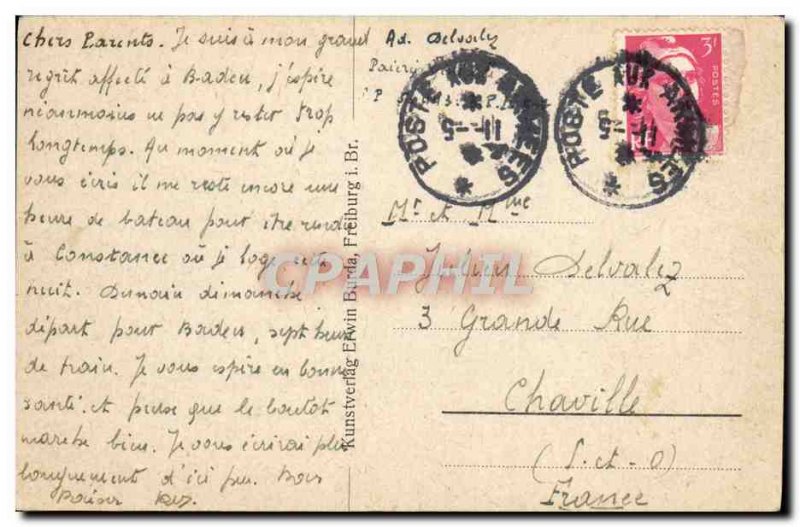 Chers Parents. Je suis à mon grand
regrèt affecté à Baden, j'espère
néanmoins ne pas y rester trop
longtemps. Au moment où je
vous écris il me reste encore une
heure de bateau pour être rendu
à Constance où je loge cette
nuit. Demain dimanche
départ pour Baden, sept heures
de train. Je vous espère en bonne
santé et pense que le boulot
marche bien. Je vous écrirai plus
longuement d'ici peu. Bons
Baisers
Kunstverlag Erwin Burda, Freiburg i. Br.
Ad. Delvalez
POSTE AUX ARMEES
11 -5
POSTE AUX ARMEES
11 -5
3F
POSTES
RF
Mr et Mme
Julien Delvalez
3 Grande Rue
Chaville
(S.-et-O)
France
CPAPHIL